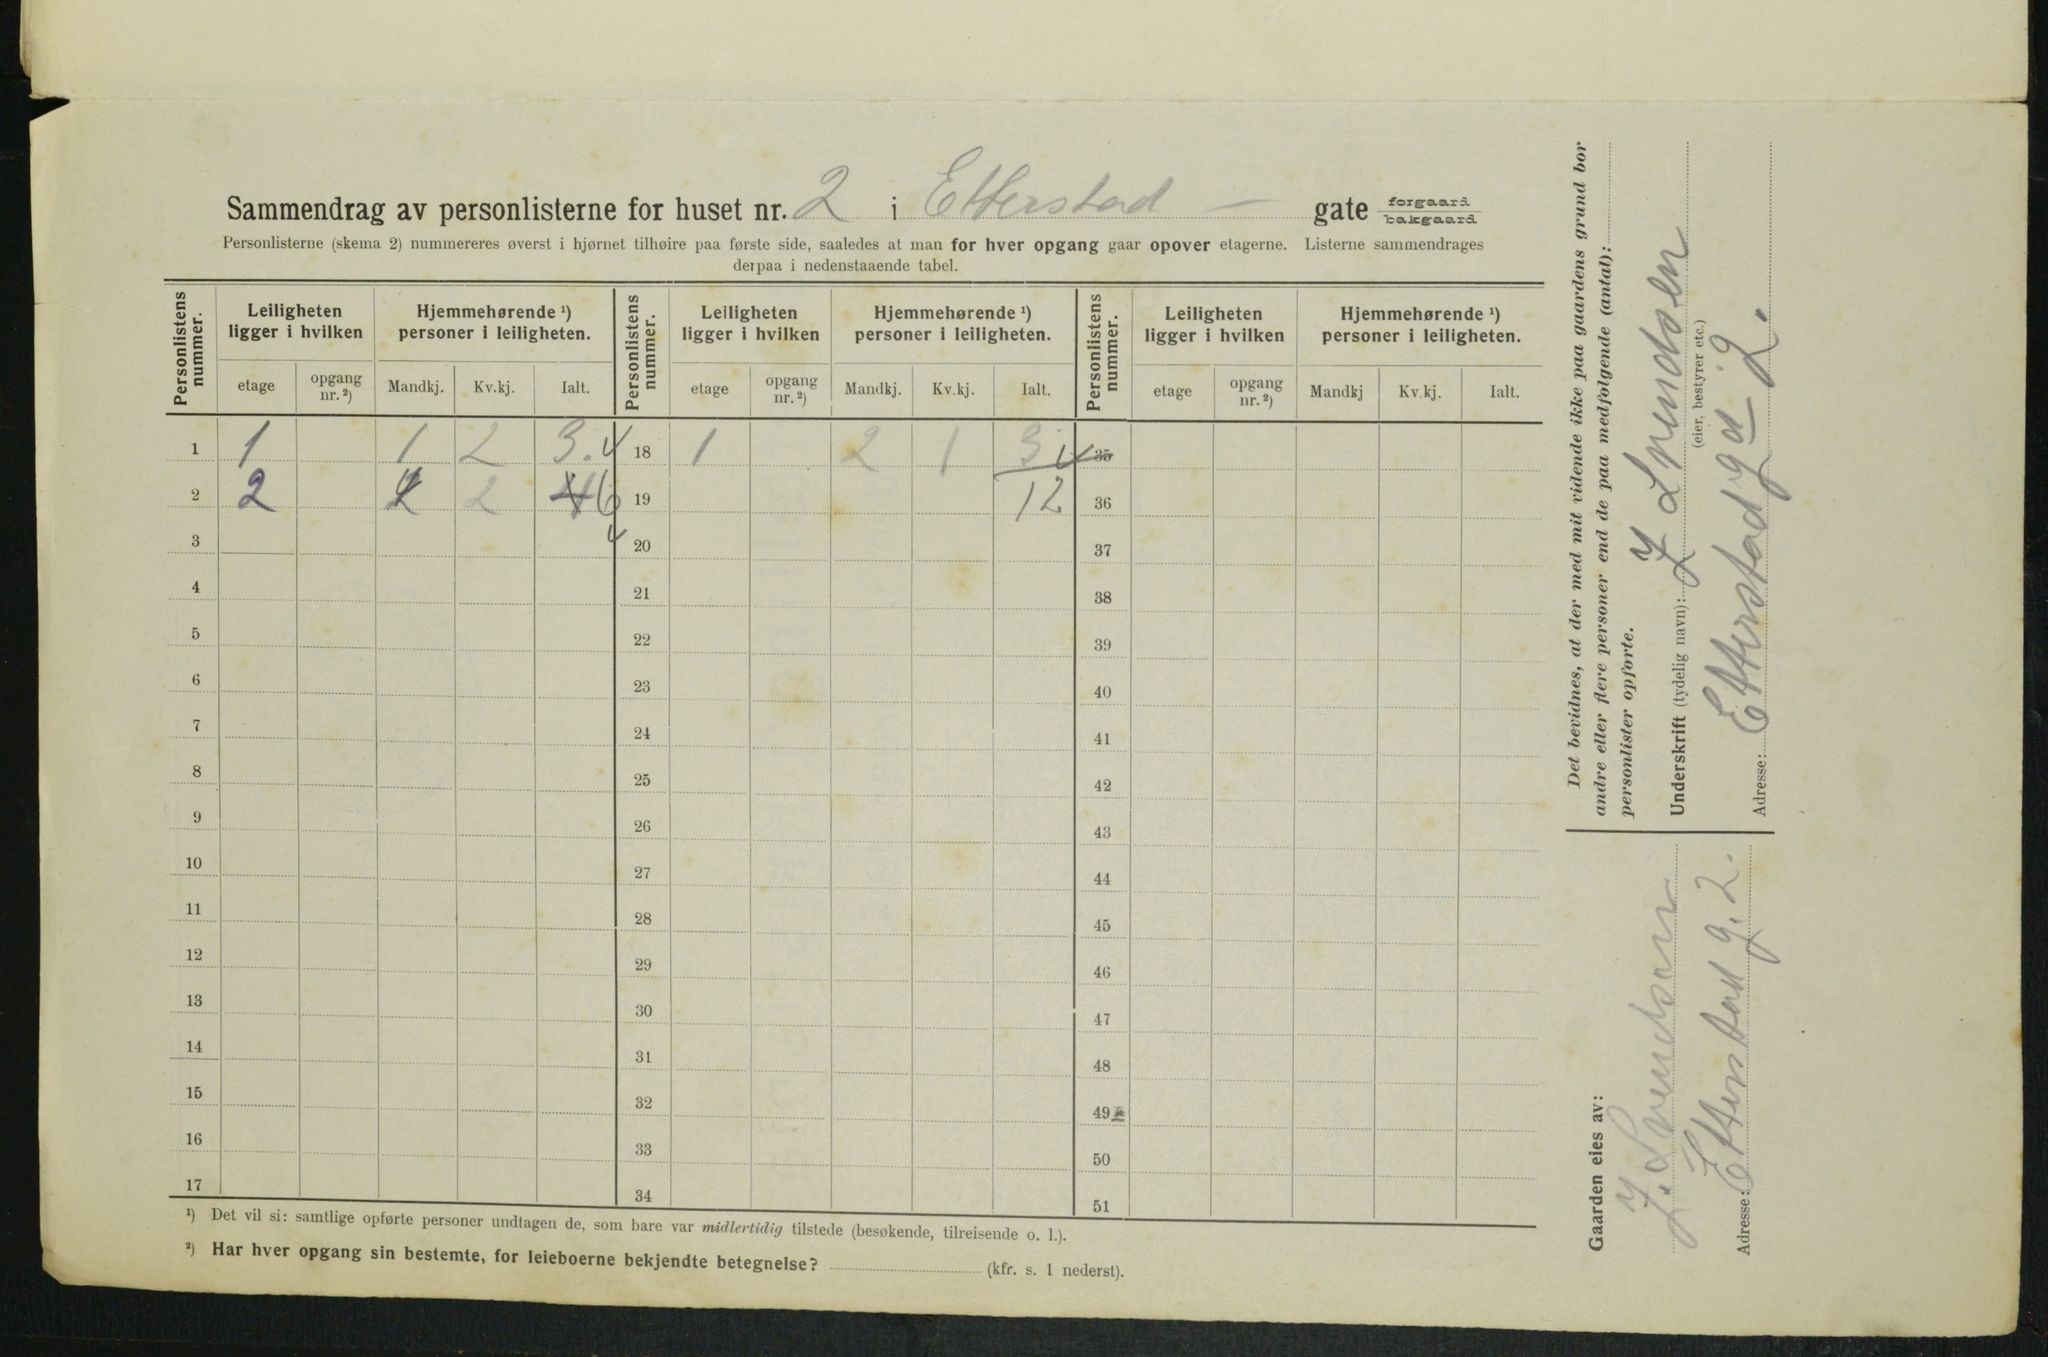 Sammendrag av personlisterne for huset nr. 2 i Etterstad – gate forgaard bakgaard
Personlisterne (skema 2) nummereres øverst i hjørnet tilhøire paa første side, saaledes at man for hver opgang gaar opover etagerne. Listerne sammendrages
derpaa i nedenstaaende tabel.
Personlistens nummer. Leiligheten ligger i hvilken Hjemmehørende ¹) personer i leiligheten. Personlistens nummer. Leiligheten ligger i hvilken Hjemmehørende ¹) personer i leiligheten. Personlistens nummer. Leiligheten ligger i hvilken Hjemmehørende ¹) personer i leiligheten.
etage opgang nr. ²) Mandkj. Kv.kj. Ialt. etage opgang nr. ²) Mandkj. Kv.kj. Ialt. etage opgang nr. ²) Mandkj Kv.kj. Ialt.
1 1 1 2 3. 18 1 2 1 3 35
2 2 2 6 19 12 36
3 20 37
4 21 38
5 22 39
6 23 40
7 24 41
8 25 42
9 26 43
10 27 44
11 28 45
12 29 46
13 30 47
14 31 48
15 32 49
16 33 50
17 34 51
¹) Det vil si: samtlige opførte personer undtagen de, som bare var midlertidig tilstede (besøkende, tilreisende o. l.).
²) Har hver opgang sin bestemte, for leieboerne bekjendte betegnelse? (kfr. s. 1 nederst).
Det bevidnes, at der med mit vidende ikke paa gaardens grund bor
andre eller flere personer end de paa medfølgende (antal):
personlister opførte.
Underskrift (tydelig navn): J Svendsen
(eier, bestyrer etc.)
Adresse: Etterstadgd 2.
Gaarden eies av:
J. Svendsen
Adresse: Etterstad g. 2.